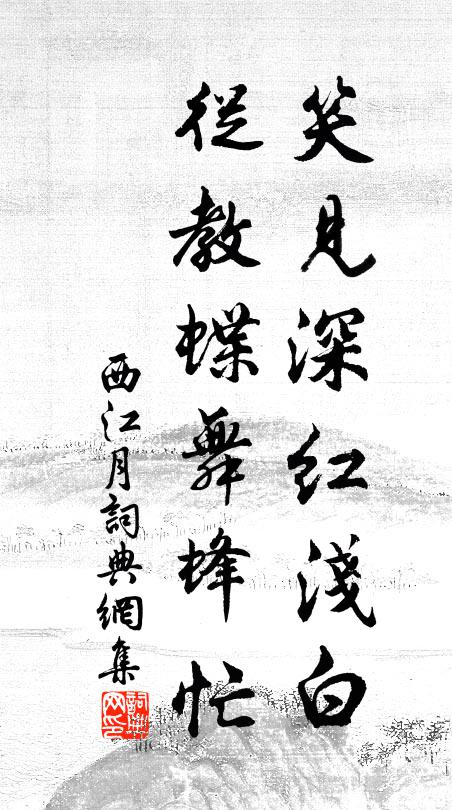 笑見深紅淺白
從教蝶舞蜂忙
西江月詞典網集